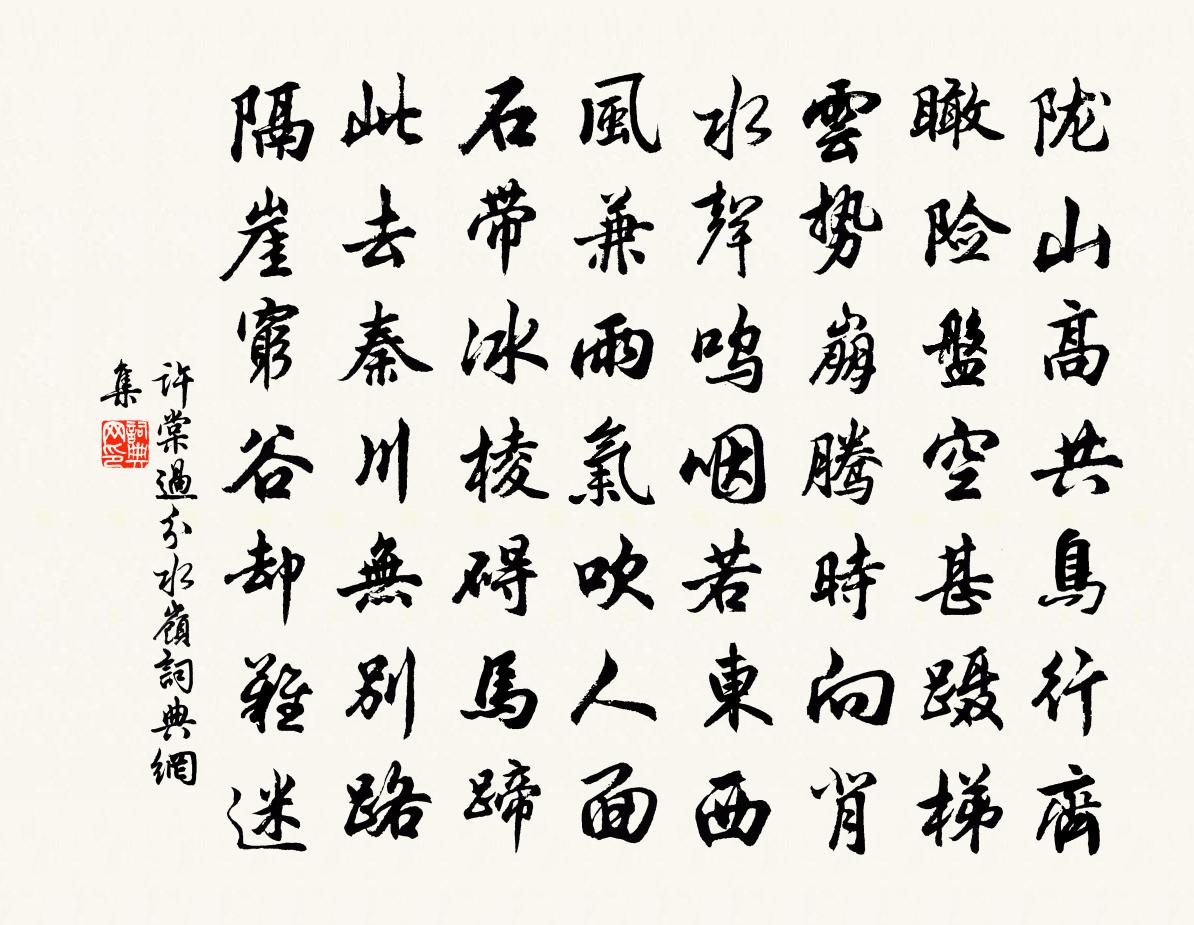 陇山高共鳥行齊
瞰险盤空甚蹑梯
雲势崩腾時向背
水聲鸣咽若東西
風兼雨氣吹人面
石带冰棱碍馬蹄
此去秦川無别路
隔崖窮谷却難迷
許棠過分水嶺詞典網
集
詞典网印